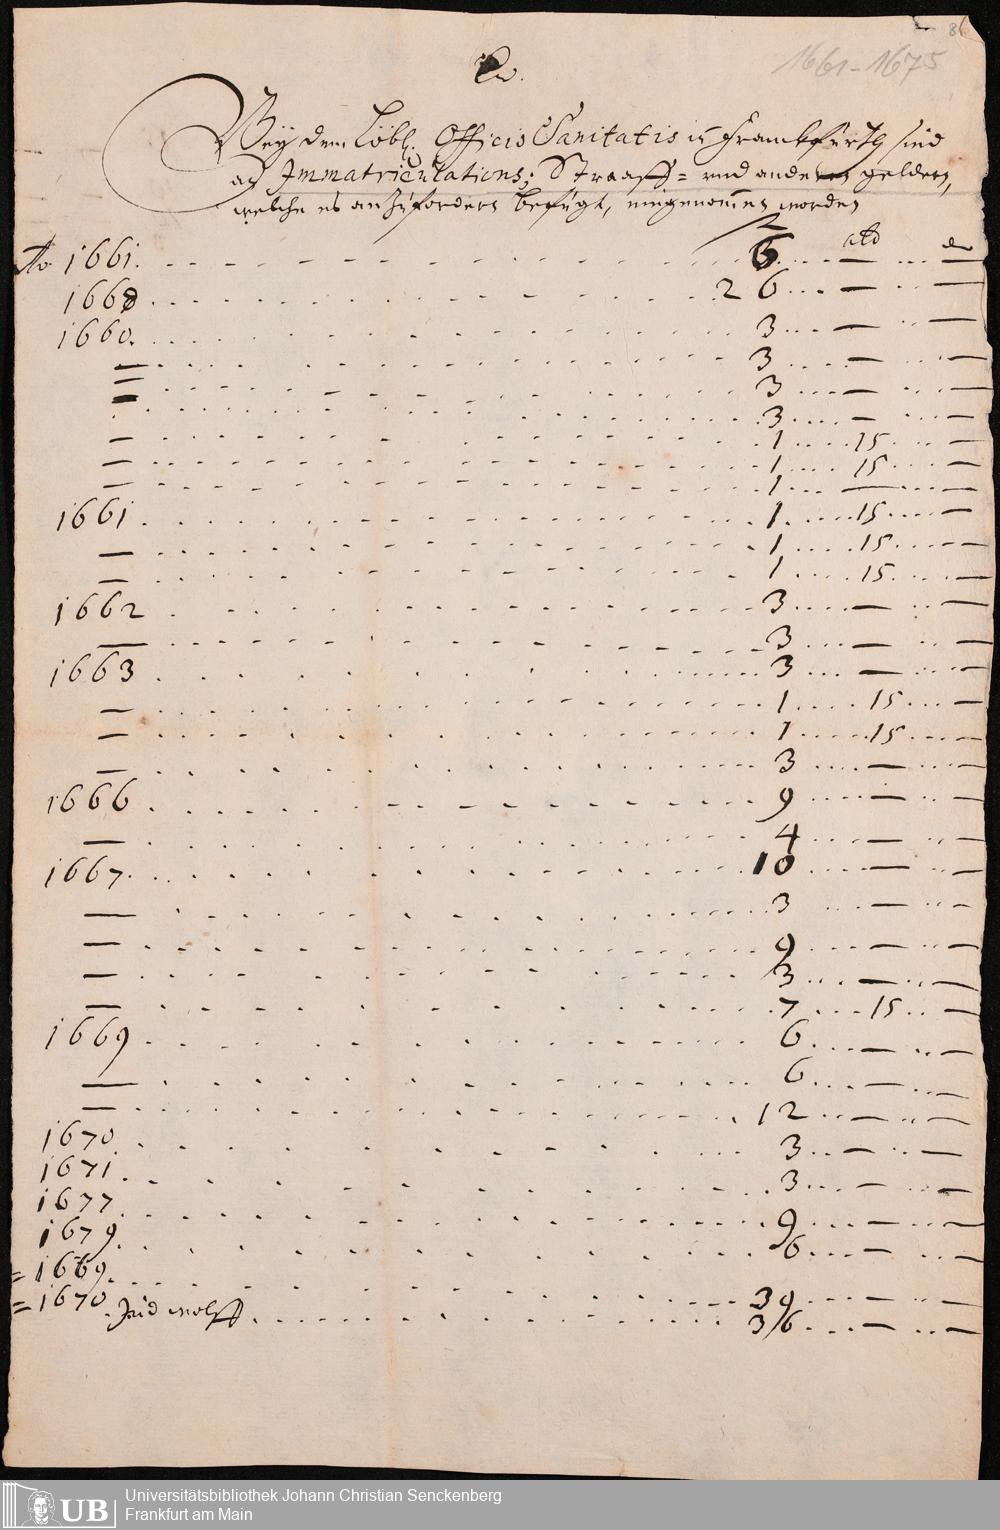 86
1661-1675
Bey dem Löbl. Officio Sanitatis in Franckfurth sind
an Immatriculations; Straaff= und andern geldern,
welche es anzufordern befugt, eingenommen worden
Ao 1661. 6 — —
1668 26 — —
1660. 3 — —
— 3 — —
— 3 — —
— 3 — —
— 1 15 —
— 1 15 —
— 1 — —
1661 1 15 —
— 1 15 —
— 1 15 —
1662 3 — —
— 3 — —
1663 3 — —
— 1 15 —
— 1 15 —
— 3 — —
1666 9 — —
— 4 — —
1667 10 — —
— 3 — —
— 9 — —
— 3 — —
— 7 15 —
1669 6 — —
— 6 — —
— 12 — —
1670 3 — —
1671 3 — —
1677 9 — —
1679 6 — —
= 1669. 39 — —
= 1670. Jud wolff 36 — —
UB Universitätsbibliothek Johann Christian Senckenberg
Frankfurt am Main